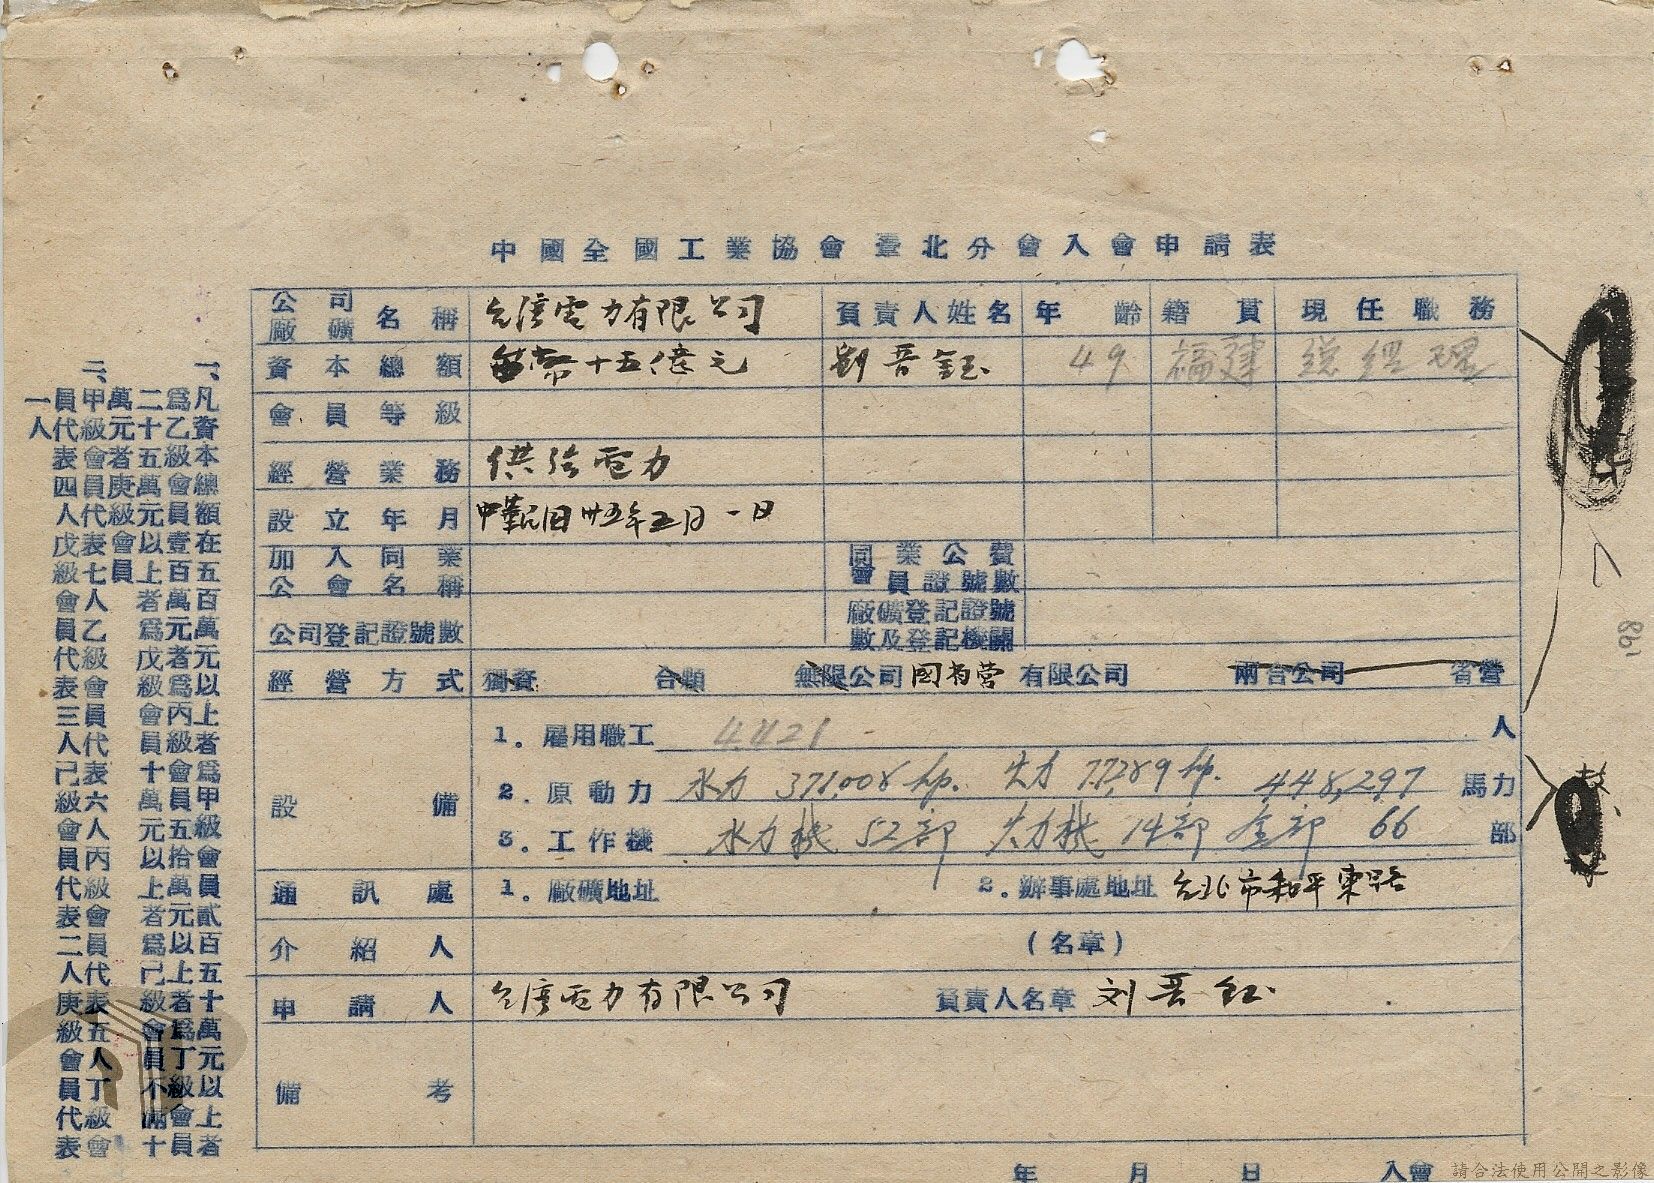 中國全國工業協會臺北分會入會申請表
公司廠礦名稱 台湾電力有限公司 負責人姓名 年齡 籍貫 現任職務
資本總額 台幣十五億元 劉晋鈺 49 福建 總經理
會員等級
經營業務 供給電力
設立年月 中華民国卅五年五月一日
加入同業公會名稱 同業公會會員證號數
公司登記證號數 廠礦登記證號數及登記機關
經營方式 獨資 合夥 無限公司 国省营 有限公司 兩合公司 省營
設備 1. 雇用職工 4421 人
2. 原動力 水力 371,008 hp. 火力 77,289 hp. 448,297 馬力
3. 工作機 水力機 52部 火力機 14部 全部 66 部
通訊處 1. 廠礦地址 2. 辦事處地址 台北市和平東路
介紹人 (名章)
申請人 台湾電力有限公司 負責人名章 刘晋鈺
備考
年 月 日 入會
一、凡資本總額在五百萬元以上者爲甲級會員貳百五十萬元以上者
爲乙級會員壹百萬元者爲丙級會員五拾萬元以上者爲丁級會員
二十五萬元以上者爲戊級會員十萬元以上者爲己級會員不滿十
萬元者庚級會員
二、甲級會員代表七人乙級會員代表六人丙級會員代表五人丁級會
員代表四人戊級會員代表三人己級會員代表二人庚級會員代表
一人
請合法使用公開之影像